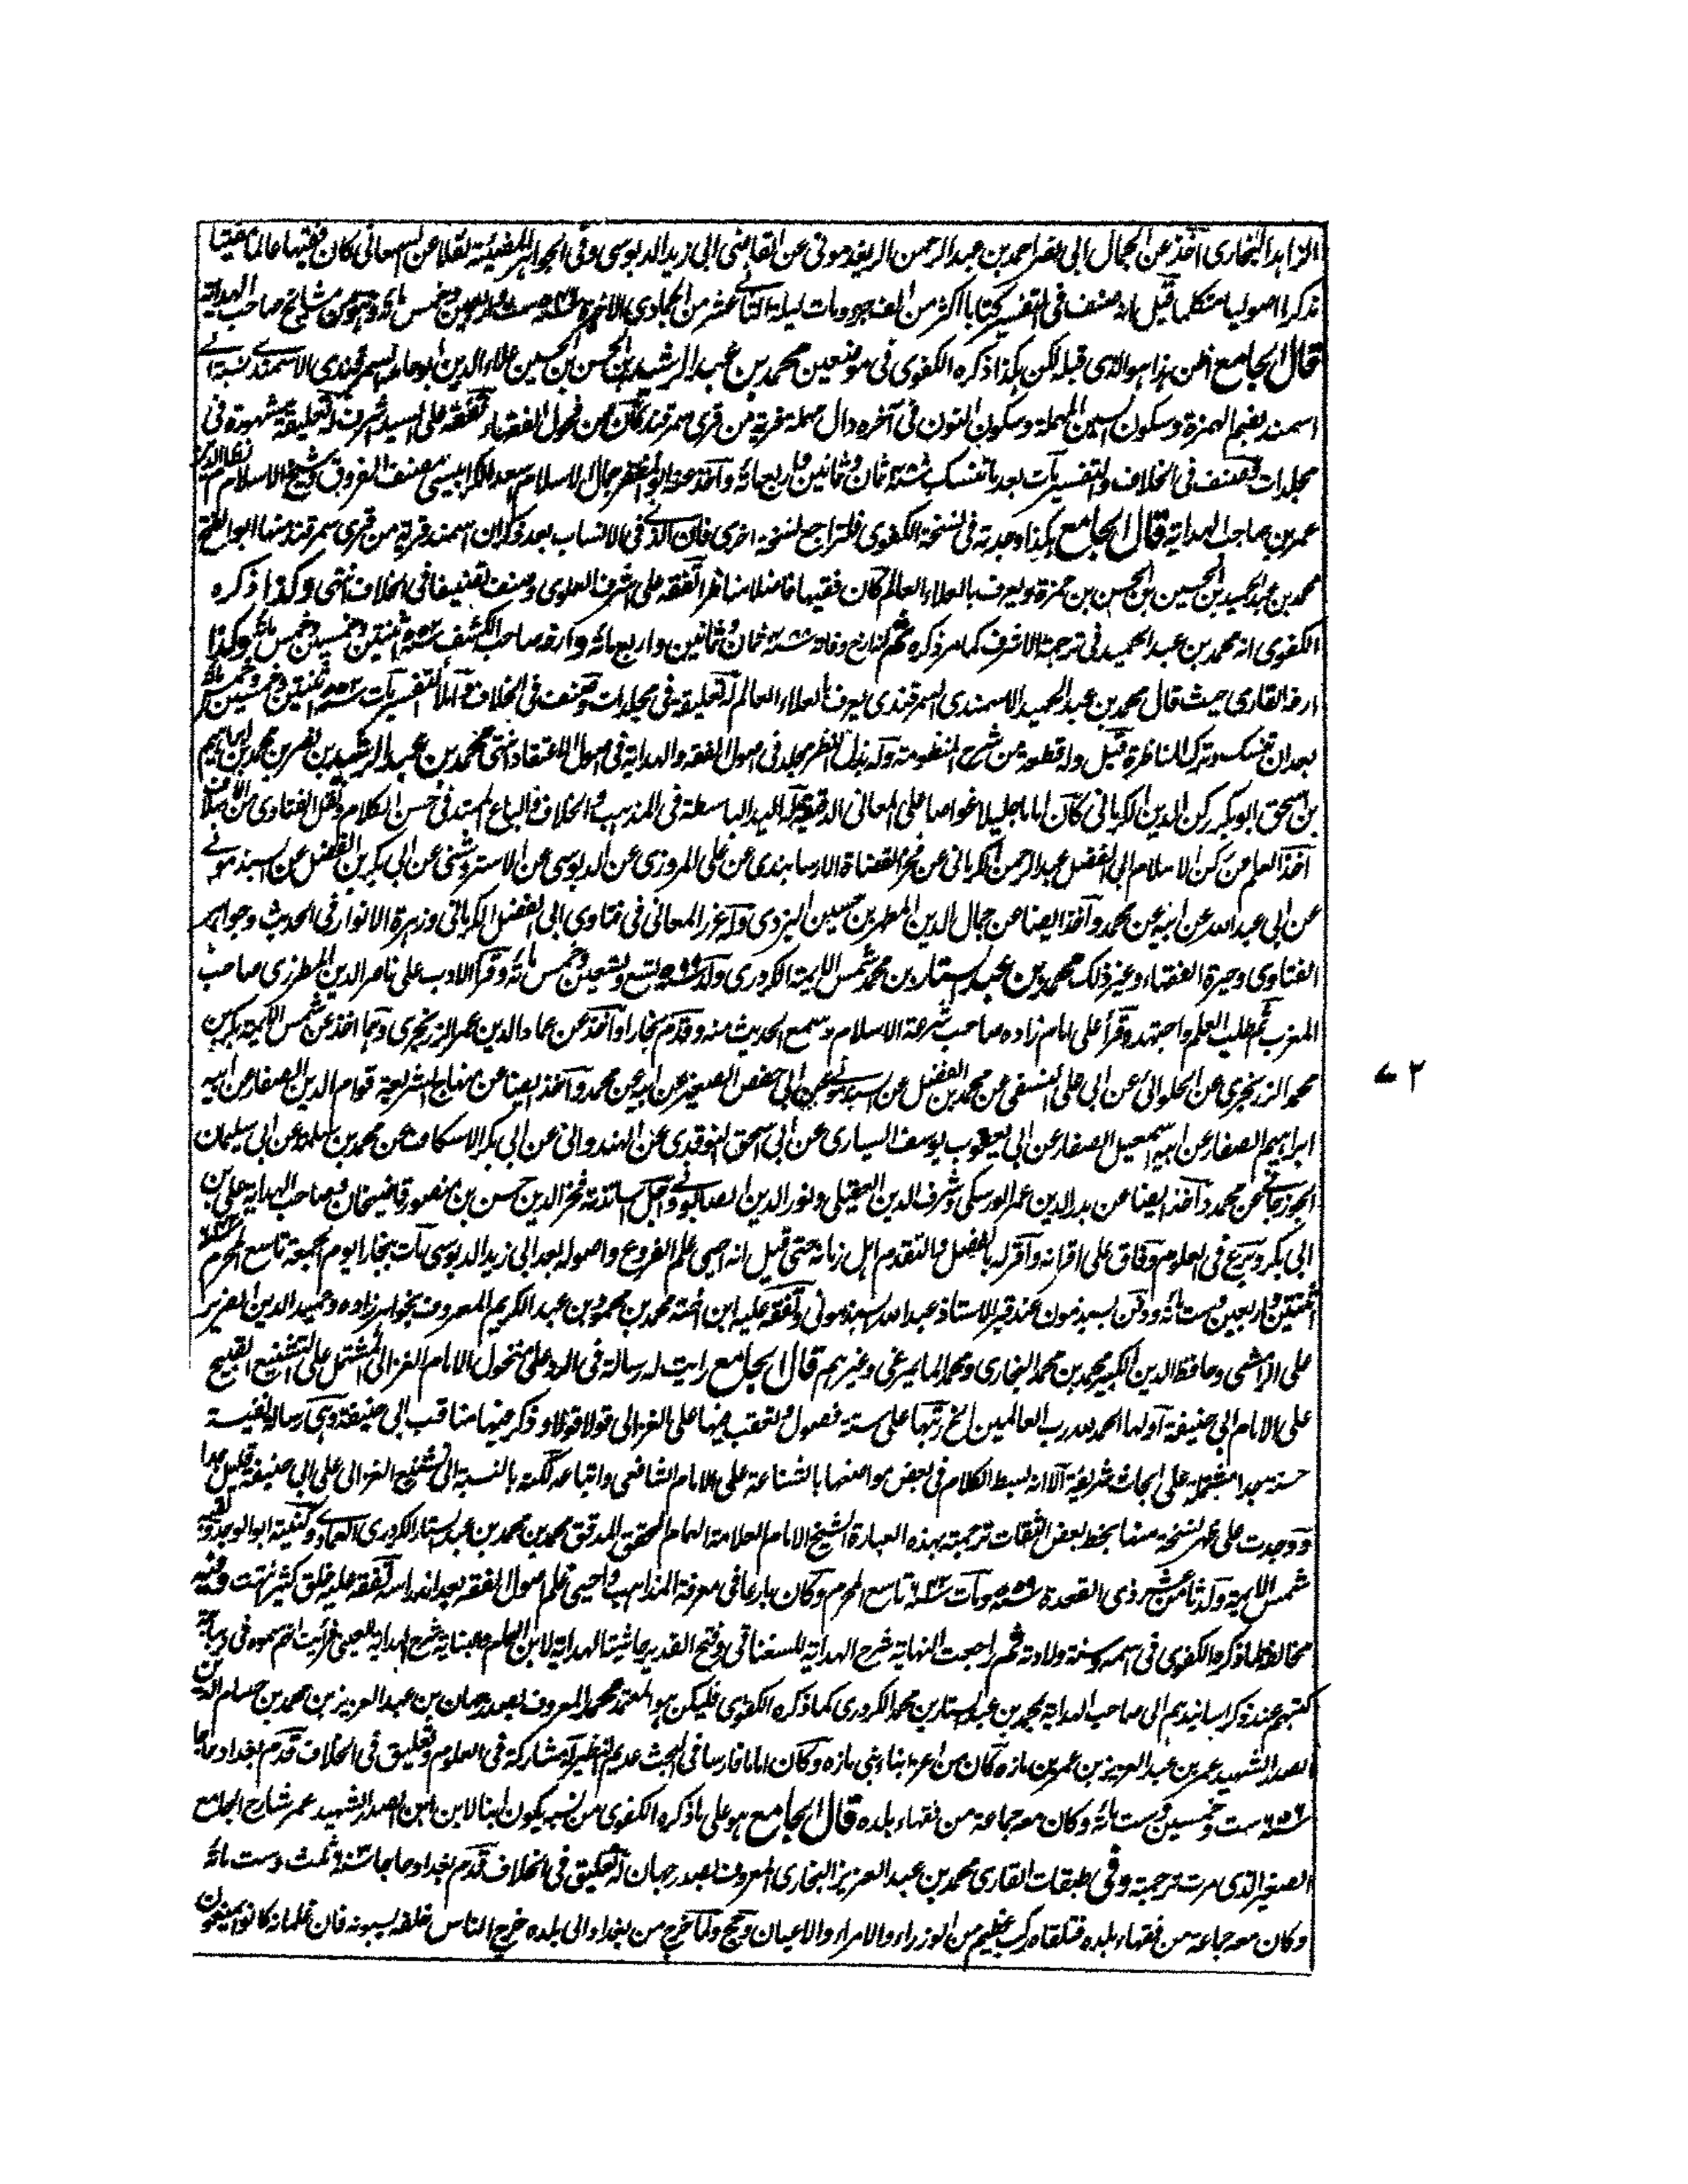 الزاهد البخارى اخذ عن الجمال ابى نصر احمد بن عبد الرحمن الريغدمونى عن القاضى ابى زيد الدبوسى وفى الجواهر المضيئة نقلا عن السمعانى كان فقيها عالما مفتيا
مذكرا اصوليا متكلما قيل انه صنف فى التفسير كتابا اكثر من الف جزء ومات ليلة الثانى عشر من الجمادى الاخرة سنة ست واربعين وخمس مائة وهو من مشايخ صاحب الهداية
قال الجامع اظن هذا هو الذى قبله لكن هكذا ذكره الكفوى فى موضعين محمد بن عبد الرشيد بن الحسن بن الحسين علاء الدين ابو حامد السمرقندى الاسمندى نسبة الى
اسمند بضم الهمزة وسكون السين المهملة وسكون النون فى آخره دال مهملة قرية من قرى سمرقند كان من فحول الفقهاء تفقه على السيد اشرف له تعليقة مشهورة فى
مجلدات وصنف فى الخلاف والتفسير مات بعد ما تنسك سنة ثمان وثمانين واربع مائة واخذ عنه ابو المظفر جمال الاسلام اسعد الكرابيسى مصنف الفروق وشيخ الاسلام نظام الدين
عمر بن صاحب الهداية قال الجامع هكذا وجدته فى نسخة الكفوى فلتراجع نسخة اخرى فان الذى فى الانساب بعد ذكر ان اسمند قرية من قرى سمرقند منها ابو الفتح
محمد بن عبد الحميد بن الحسين بن الحسن بن حمزة ويعرف بالعلاء العالم كان فقيها فاضلا مناظرا تفقه على اشرف العلوى وصنف تصنيفا فى الخلاف انتهى وكذا ذكره
الكفوى انه محمد بن عبد الحميد فى ترجمة الاشرف كما مر ذكره ثم تاريخ وفاته سنة ثمان وثمانين واربع مائة وارخه صاحب الكشف ٥٥٢ اثنتين وخمسين وخمس مائة وكذا
ارخه القارى حيث قال محمد بن عبد الحميد الاسمندى السمرقندى يعرف بالعلاء العالم له تعليقة فى مجلدات وصنف فى الخلاف واملأ التفسير مات ٥٥٢ اثنتين وخمسين وخمس مائة
بعد ان تنسك وترك المناظرة قيل وله قطعة من شرح المنظومة وله بذل النظر مجلد فى اصول الفقه والهداية فى اصول الاعتقاد انتهى محمد بن عبد الرشيد بن نصر بن محمد بن ابراهيم
بن اسحق ابو بكر ركن الدين الكرمانى كان اماما جليلا غواصا على المعانى الدقيقة له اليد الباسطة فى المذهب والخلاف والباع الممتد فى حسن الكلام ونقل الفتاوى من الاسلاف
اخذ العلم عن ركن الاسلام ابى الفضل عبد الرحمن الكرمانى عن فخر القضاة الارسابندى عن على المروزى عن الدبوسى عن الاستروشنى عن ابى بكر بن الفضل عن السبذمونى
عن ابى عبد الله عن ابيه عن محمد واخذ ايضا عن جمال الدين المطهر بن حسين اليزدى وله غرر المعانى فى فتاوى ابى الفضل الكرمانى وزهرة الانوار فى الحديث وجواهر
الفتاوى وحيرة الفقهاء وغير ذلك محمد بن عبد الستار بن محمد شمس الائمة الكردرى ولد ٥٩٩ تسع وتسعين وخمس مائة وقرأ الادب على ناصر الدين المطرزى صاحب
المغرب ثم طلب العلم واجتهد وقرأ على امام زاده صاحب شرعة الاسلام وسمع الحديث منه وقدم بخارا واخذ عن عماد الدين عمر الزرنجرى وهما اخذ عن شمس الائمة بكر بن
محمد الزرنجرى عن الحلوانى عن ابى على النسفى عن محمد بن الفضل عن السبذمونى عن ابى حفص الصغير عن ابيه عن محمد واخذ ايضا عن منهاج الشريعة قوام الدين الصفار عن ابيه
ابراهيم الصفار عن ابيه اسمعيل الصفار عن ابى يعقوب يوسف السيارى عن ابى اسحق النوقدى عن الهندوانى عن ابى بكر الاسكاف عن محمد بن سلمة عن ابى سليمان
الجوزجانى عن محمد واخذ ايضا عن بدر الدين عمر الورسكى وشرف الدين العقيلى ونور الدين الصابونى واجل اساتذته فخر الدين حسن بن منصور قاضيخان وصاحب الهداية على بن
ابى بكر وبرع فى العلوم وفاق على اقرانه واقر له بالفضل والتقدم اهل زمانه حتى قيل انه احيى علم الفروع واصوله بعد ابى زيد الدبوسى مات ببخارا يوم الجمعة تاسع المحرم ٦٤٢
اثنتين واربعين وست مائة ودفن بسبذمون عند قبر الاستاذ عبد الله السبذمونى وتفقه عليه ابن اخته محمد بن محمود بن عبد الكريم المعروف بخواهرزاده وحميد الدين الضرير
على الرامشى وحافظ الدين الكبير محمد بن محمد البخارى ومحمد المايمرغى وغيرهم قال الجامع رايت له رسالة فى الرد على منخول الامام الغزالى المشتمل على التشنيع القبيح
على الامام ابى حنيفة اولها الحمد لله رب العالمين الخ رتبها على ستة فصول وتعقب فيها على الغزالى قولا قولا وذكر فيها مناقب ابى حنيفة وهى رسالة نفيسة
حسنة جدا مشتملة على ابحاث شريفة الا انه بسط الكلام فى بعض مواضعها بالشناعة على الامام الشافعى واتباعه لكنه بالنسبة الى تشنيع الغزالى على ابى حنيفة قليل جدا
ووجدت على ظهر نسخة منها بخط بعض الثقات ترجمته بهذه العبارة الشيخ الامام العلامة الهمام المحقق المدقق محمد بن محمد بن عبد الستار الكردرى العمادى وكنيته ابو الوجد ولقبه
شمس الائمة ولد ثامن عشر ذى القعدة ٥٥٩ ومات ٦٤٢ تاسع المحرم وكان بارعا فى معرفة المذاهب واحيى علم اصول الفقه بعد اندراسه تفقه عليه خلق كثير انتهت وفيه
مخالفة لما ذكره الكفوى فى اسمه وسنة ولادته ثم راجعت النهاية شرح الهداية للسغناقى وفتح القدير حاشية الهداية لابن الهمام والبناية شرح الهداية للعينى فرأيت انهم سموه فى ديباجة
كتبهم عند ذكر اسانيدهم الى صاحب الهداية بمحمد بن عبد الستار بن محمد الكردرى كما ذكره الكفوى فليكن هو المعتمد محمد المعروف بصدر جهان بن عبد العزيز بن محمد بن حسام الدين
الصدر الشهيد عمر بن عبد العزيز بن عمر بن مازه كان من اعزة ابناء بنى مازه وكان اماما فارسا فى البحث عديم النظير له مشاركة فى العلوم وتعليق فى الخلاف قدم بغداد حاجا
٦٥٦ ست وخمسين وست مائة وكان معه جماعة من فقهاء بلده قال الجامع هو على ما ذكره الكفوى من نسبه يكون ابنا لابن ابن الصدر الشهيد عمر شارح الجامع
الصغير الذى مرت ترجمته وفى طبقات القارى محمد بن عبد العزيز البخارى المعروف بصدر جهان له تعليق فى الخلاف قدم بغداد حاجا ثلث وست مائة
وكان معه جماعة من فقهاء بلده فتلقاه ركب عظيم من الوزراء والامراء والاعيان وحج ولما خرج من بغداد الى بلده خرج الناس خلفه يسبونه فان غلمانه كانوا يمنعون
٧٢